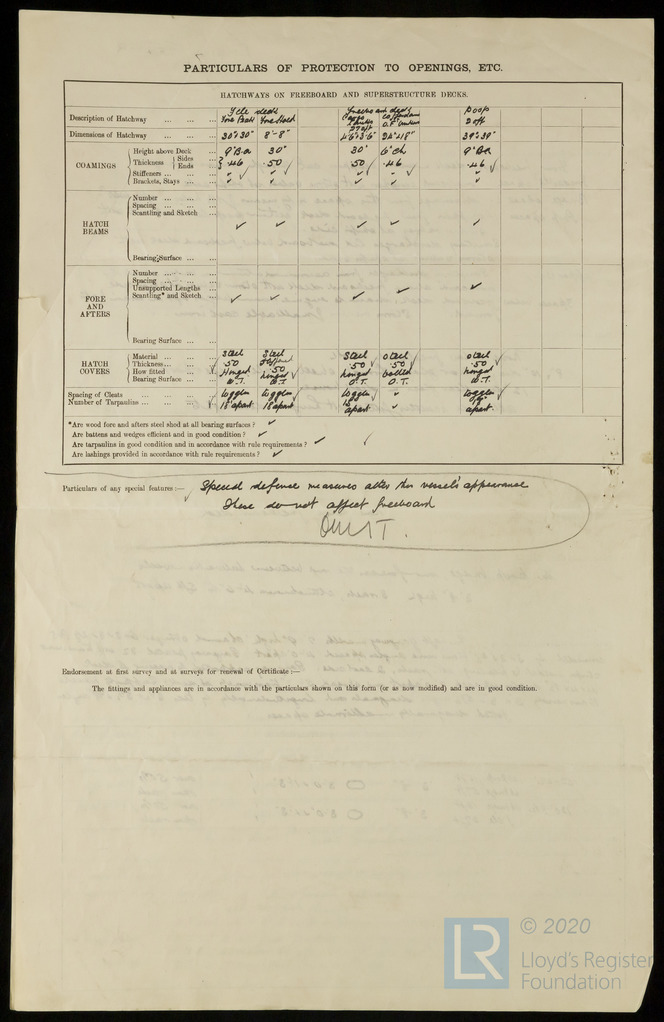 PARTICULARS OF PROTECTION TO OPENINGS, ETC.
HATCHWAYS ON FREEBOARD AND SUPERSTRUCTURE DECKS.
Description of Hatchway ... ... ...
Dimensions of Hatchway ... ... ... 30"x30" 8'-8" 24"x18"
COAMINGS
Height above Deck ... 30" 30"
Thickness { Sides Ends ... .46 .50 .50 .46 .46
Stiffeners ... ... ...
Brackets, Stays ... ...
HATCH BEAMS
Number ... ... ...
Spacing ... ... ...
Scantling and Sketch ...
Bearing Surface ... ...
FORE AND AFTERS
Number ... ... ...
Spacing ... ... ...
Unsupported Lengths ...
Scantling* and Sketch ...
Bearing Surface ... ...
HATCH COVERS
Material ... ... ... Steel Steel Steel Steel Steel
Thickness ... ... ... .50 .50 .50 .50 .50
How fitted ... ... Hinged hinged hinged bolted hinged
Bearing Surface ... ... W.T. W.T. O.T. O.T. W.T.
Spacing of Cleats ... ... ... toggles toggles toggles toggles
Number of Tarpaulins ... ... ... 18" apart 18" apart 18" apart apart
*Are wood fore and afters steel shod at all bearing surfaces ?
Are battens and wedges efficient and in good condition ?
Are tarpaulins in good condition and in accordance with rule requirements ?
Are lashings provided in accordance with rule requirements ?
Particulars of any special features :— Special defense measures alter this vessel's appearance
These do not affect freeboard
OMIT.
Endorsement at first survey and at surveys for renewal of Certificate :—
The fittings and appliances are in accordance with the particulars shown on this form (or as now modified) and are in good condition.
LR
© 2020
Lloyd's Register
Foundation